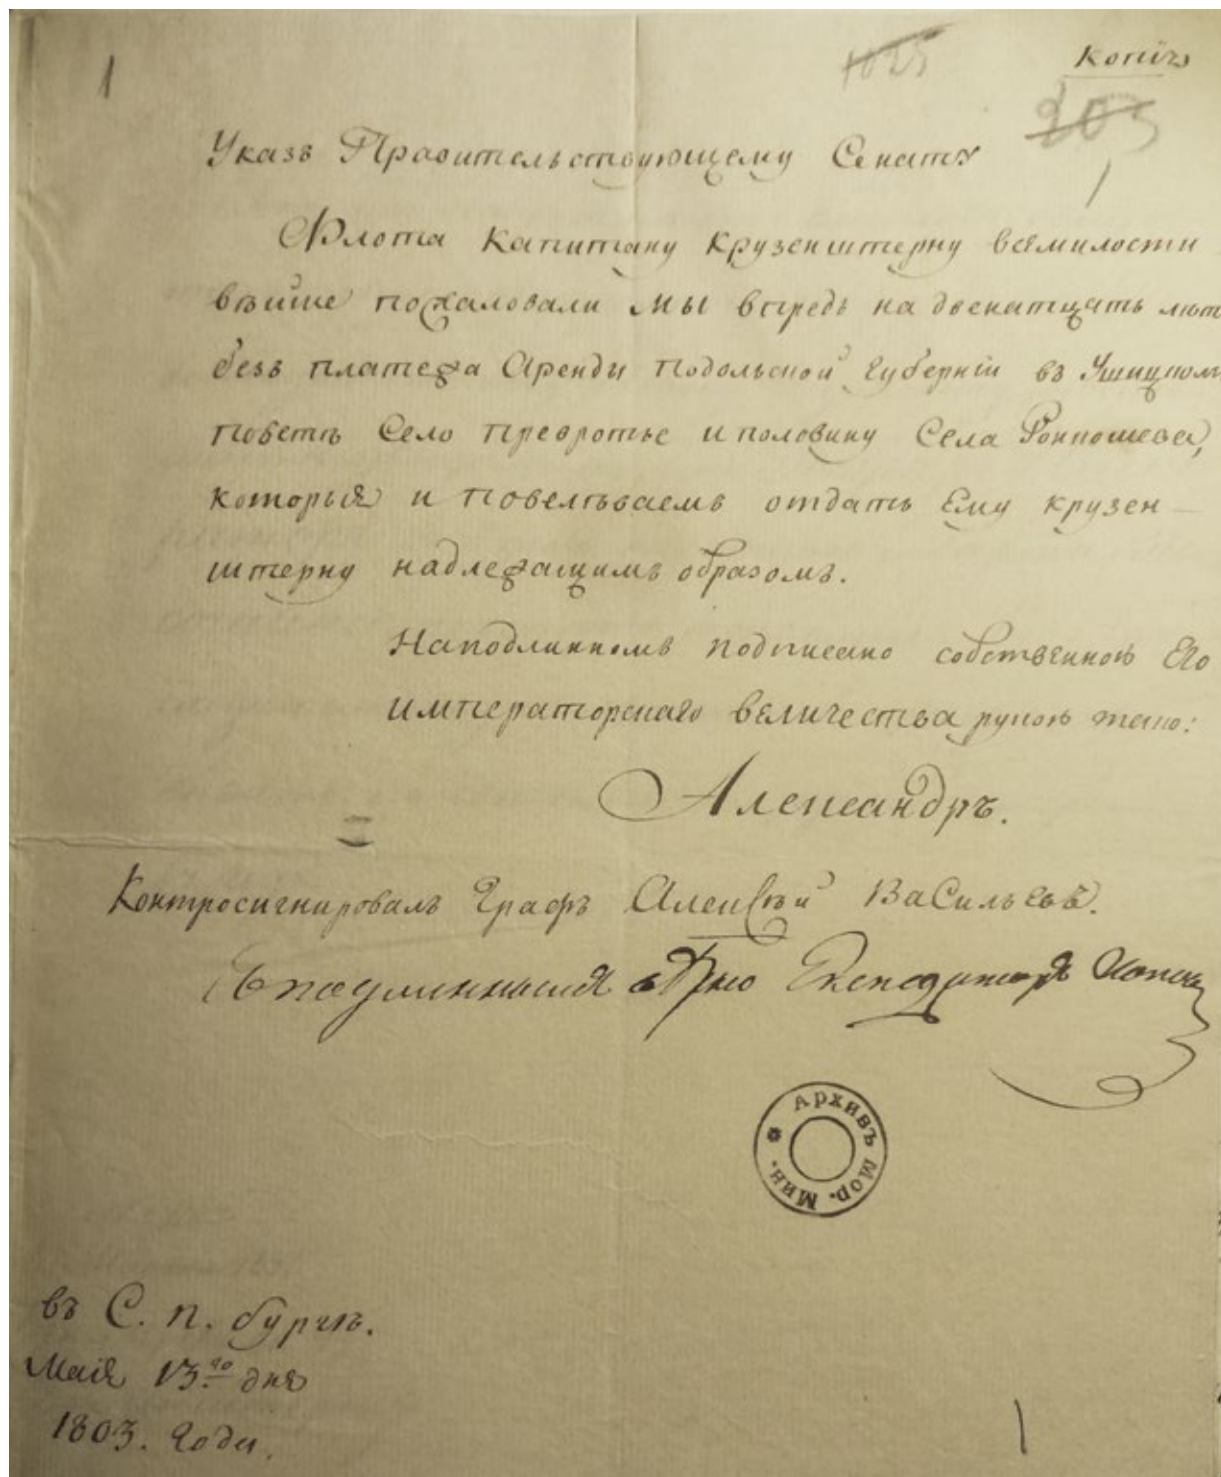 1
1025
Копія
203
1
Указъ Правительствующему Сенату
Флота Капитану Крузенштерну всемилости
вѣйше пожаловали мы впредь на двенатцать лѣт
безъ платежа Аренды Подольской Губерніи въ Ушицком
Поветѣ Село Превротье и половину Села
которыя и повелѣваемъ отдать Ему Крузен-
штерну надлежащимъ образомъ.
На подлинномъ подписано собственною Его
императорскаго величества рукою тако:
Александръ.
Контросигнировалъ Графъ Алексѣй Васильевъ.
Экспедиторъ
Архивъ Мор. Мин.
въ С. П. бургѣ.
Маія 13го дня
1803. Года.